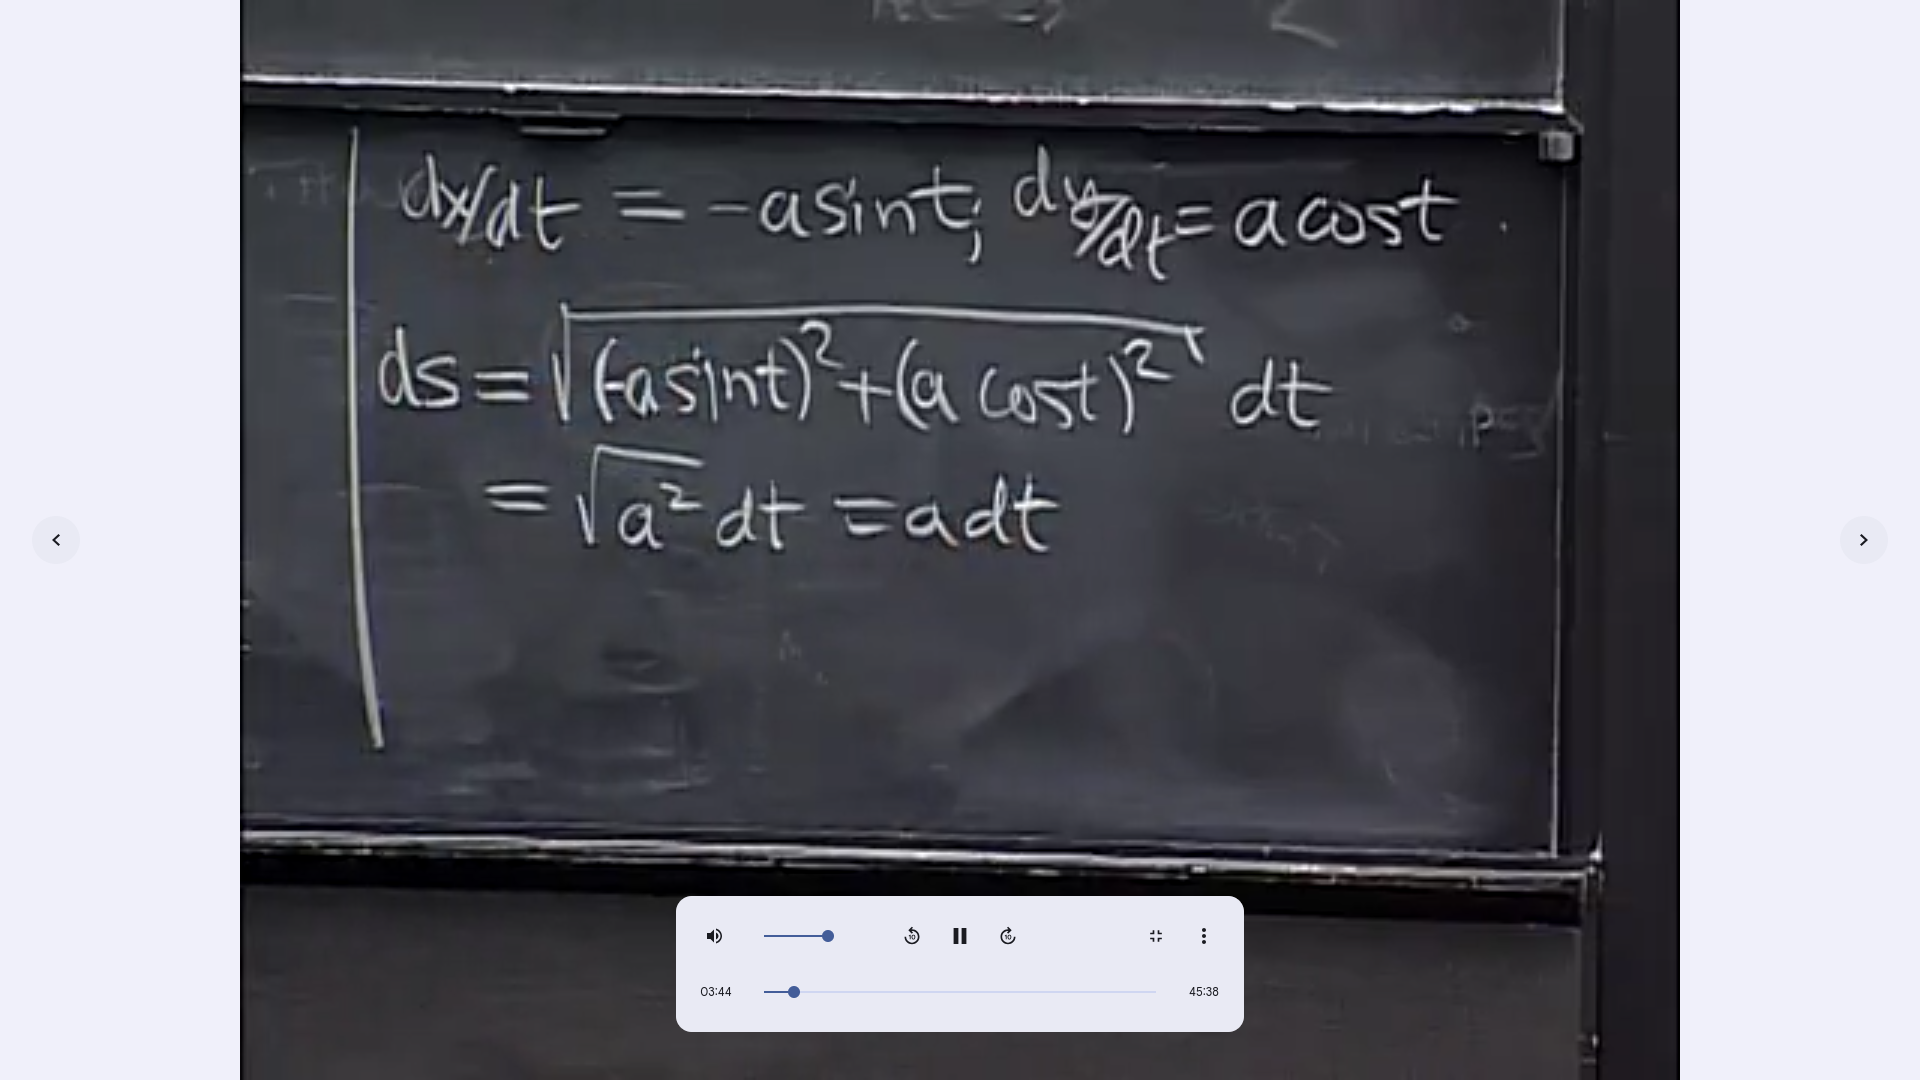 dx/dt = -asint; dy/dt = acost.
ds = √(-asint)² + (a cost)² dt
= √a² dt = adt
10
10
03:44
45:38